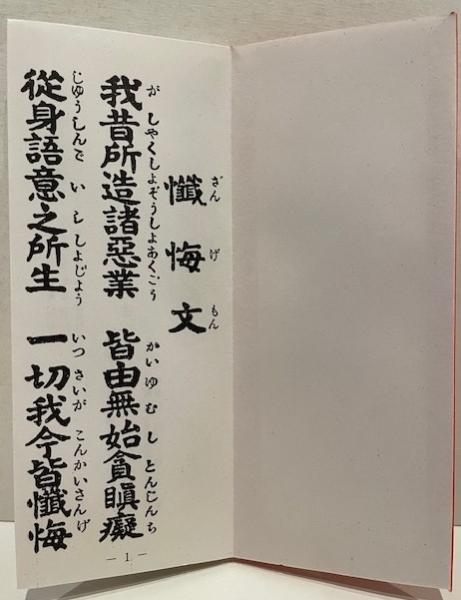 ざんげもん
懺悔文
がしやくしよぞうしよあくごう かいゆむしとんじんち
我昔所造諸惡業 皆由無始貪瞋癡
じゆうしんごいししよじよう いつさいがこんかいさんげ
從身語意之所生 一切我今皆懺悔
— 1 —